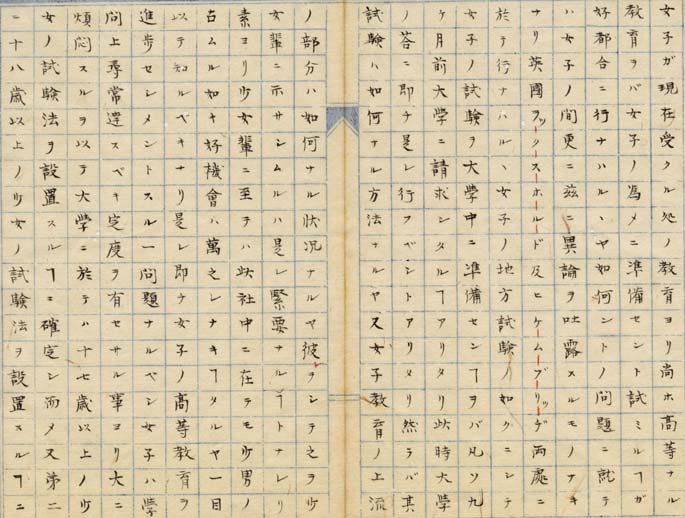 女子ガ現在受クル処ノ教育ヨリ尚ホ高等ナル
教育ヲバ女子ノ為メニ準備セント試ミルヿガ
好都合ニ行ナハルヽヤ如何ントノ問題ニ就テ
ハ女子ノ間更ニ茲ニ異論ヲ吐露スルモノアキ
ナリ英國ヲックスホールド及ヒケームブリッヂ両處ニ
於テ行ナハルヽ女子ノ地方試験ノ如クニシテ
女子ノ試験ヲ大學中ニ準備センヿヲバ凡ソ九
ケ月前大學ニ請求シタルヿアリタリ此時大學
ノ答ニ即チ是レ行フベシトアリタリ然ラバ其
試験ハ如何ナル方法ナルヤ又女子教育ノ上流
ノ部分ハ如何ナル状況ナルヤ彼ヲシテ之ヲ少
女輩ニ示サシムルハ是レ緊要ナルヿトナレリ
素ヨリ少女輩ニ至テハ此社中ニ在テモ少男ノ
占ムル如キ好機會ハ萬之レナキヿタルヤ一目
以テ知ルベキナリ是レ即チ女子ノ高等教育ヲ
進歩セシメントスル一問題ナルベシ女子ハ學
問上尋常達スベキ定度ヲ有セサル事ヨリ大ニ
煩悶スルヲ以テ大學ニ於テハ十七歳以上ノ少
女ノ試験法ヲ設置スルヿニ確定シ而メ又第二
ニ十八歳以上ノ少女ノ試験法ヲ設置スルヿニ